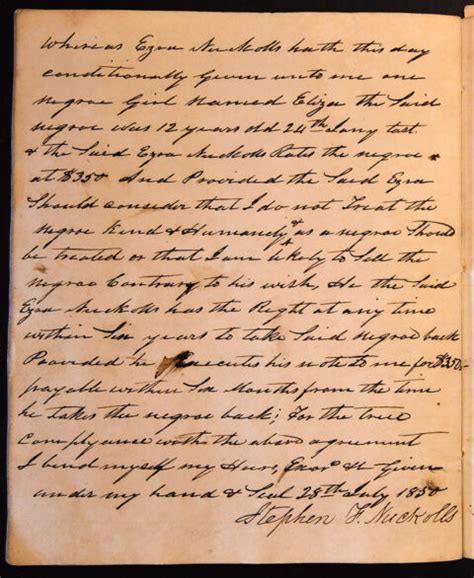 Whereas Ezra Nuckolls hath this day
conditionally Given unto me one
negroe Girl named Eliza the Said
negroe was 12 years old 24th Jany last
& the Said Ezra Nuckolls Rates the negroe
at $350 And Provided the Said Ezra
Should consider that I do not Treat the
negroe Kind & Humanely & as a negroe Should
be treated or that I am likely to Sell the
negroe Contrary to his wish, He the Said
Ezra Nuckolls has the Right at any time
within Six years to take Said negroe back
Provided he executes his note to me for $350,
payable within Six Months from the time
he takes the negroe back; For the true
complyance with the above agreement
I bind myself my Heirs, Exors &c Given
under my hand & Seal 28th July 1850
Stephen F. Nuckolls